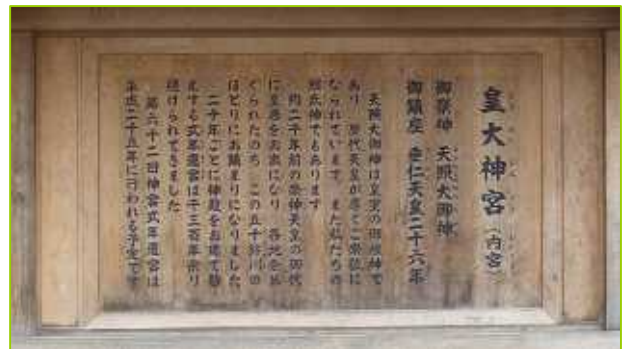 皇大神宮（内宮）
御祭神 天照大御神
御鎮座 垂仁天皇二十六年
天照大御神は皇室の御祖神で
あり 歴代天皇が厚くご崇敬に
なられています。また私たちの
総氏神でもあります
約二千年前の崇神天皇の御代
に皇居をお出になり 各地をめ
ぐられたのち この五十鈴川の
ほとりにお鎮まりになりました
二十年ごとに神殿をお建て替
えする式年遷宮は千三百年余り
続けられてきました
第六十二回神宮式年遷宮は
平成二十五年に行われる予定です